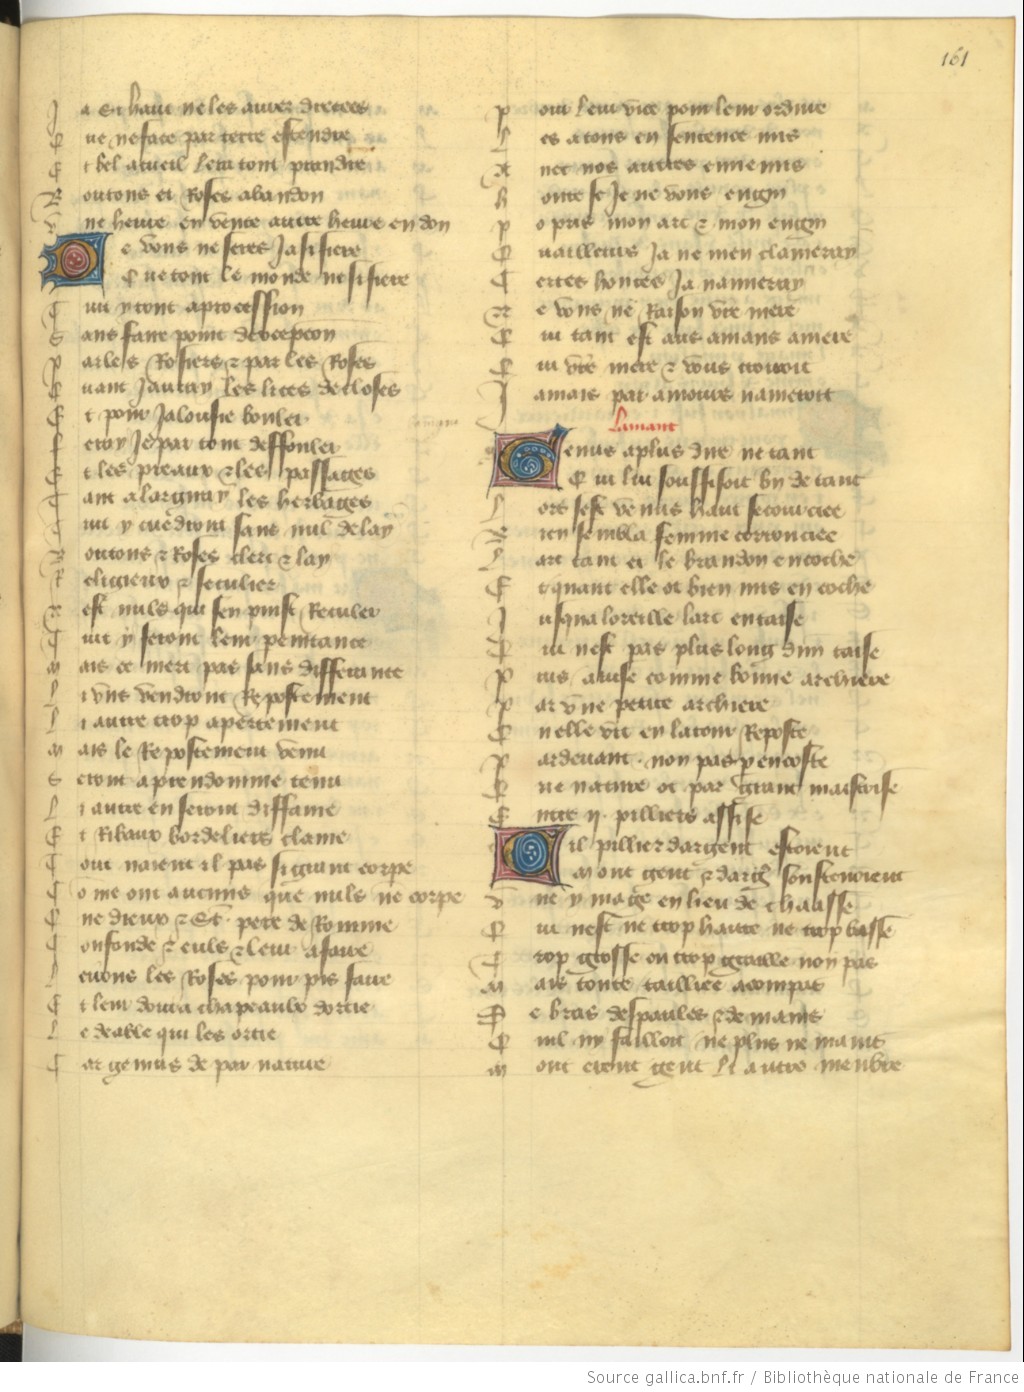 161
Ja si haut ne les aurez drecees
Que ne face par terre estendre
Et bel acueil leur tout prandre
Boutons et Roses abandon
Une heure en vente autre heure en don
Ne vous ne seres Ja si fiere
Que tout le monde ne si fiere
Tuit yront a procession
Sans faire point dexcepcion
Par les Rosiers et par les Roses
Quant Jauray les lices descloses
Et pour Jalousie bouler
Feray Je par tout deffouler
Et les preaux et les passages
Tant alargiray les herbages
Tuit y cuedront sans nul delay
Boutons et Roses clerc et lay
Religieux et seculier
Nest nuls qui sen puist Reculer
Tuit y feront leur penitance
Mais ce niert pas sans differance
Li uns vendront Repostement
Li autre trop apertement
Mais le Repostement venu
Seront a preudomme tenu
Li autre en seront diffame
Et Ribaux bordeliers clame
Tout naient il pas si grant corpe
Come ont aucuns que nuls ne corpe
ne dieux et St. pere de Romme
Confonde et euls et leur afaire
les Roses pour pis faire
Et leur donra chapeaulx dortie
Le deable qui les ortie
Car genius de par nature
Pour leur vice pour leur ordure
Les a tous en sentence mis
Avec nos autres ennemis
Honte se Je ne vous engin
Po pris mon arc et mon engin
Quailleurs Ja ne men clameray
Certes honte Ja nameray
Ne vous ne Raison vtre mere
Qui tant est aus amans amere
Qui vtre mere et vous croiroit
Jamais par amours nameroit
Lamant
Venus a plus dire ne tant
Qui lui souffisoit bn de tant
Lors sest venus haut secourciee
Bien sembla femme corrouciee
Larc tant et le brandon encoche
Et quant elle ot bien mis en coche
Jusqua loreille larc entaise
Qui nest pas plus long dun taise
Puis avise comme bonne archiere
Par une petite archiere
Quelle vit en la tour Reposte
Par devant non pas p encoste
Que nature ot par grant maistrise
Entre ij pilliers assise
Cil pillier dargent estoient
Mont gent et darg soustenoient
Une ymage en lieu de chasse
Qui nest ne trop haute ne trop basse
Trop grosse ou trop graille non pas
Mais toute tailliee a compas
De bras despaules et de mains
Quil ny failloit ne plus ne mains
Mont erent gent li autre menbre
Source gallica.bnf.fr / Bibliothèque nationale de France